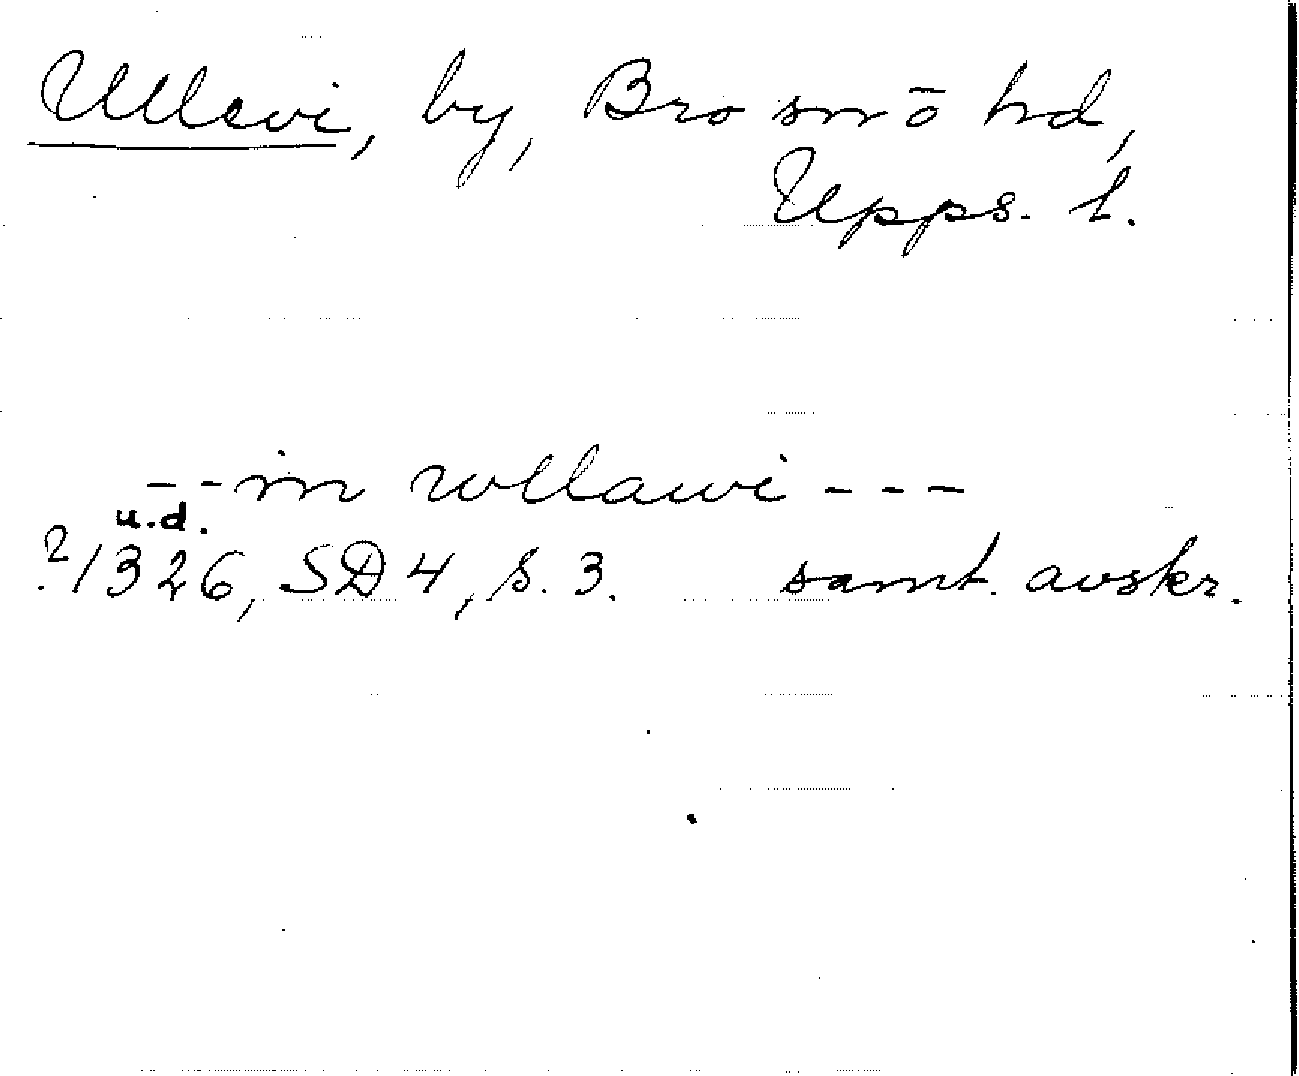 Ullevi, by, Bro snrō hd,
Upps. l.
--in wllawi---
u.d.
?1326, SD 4, s. 3. samt. avskr.